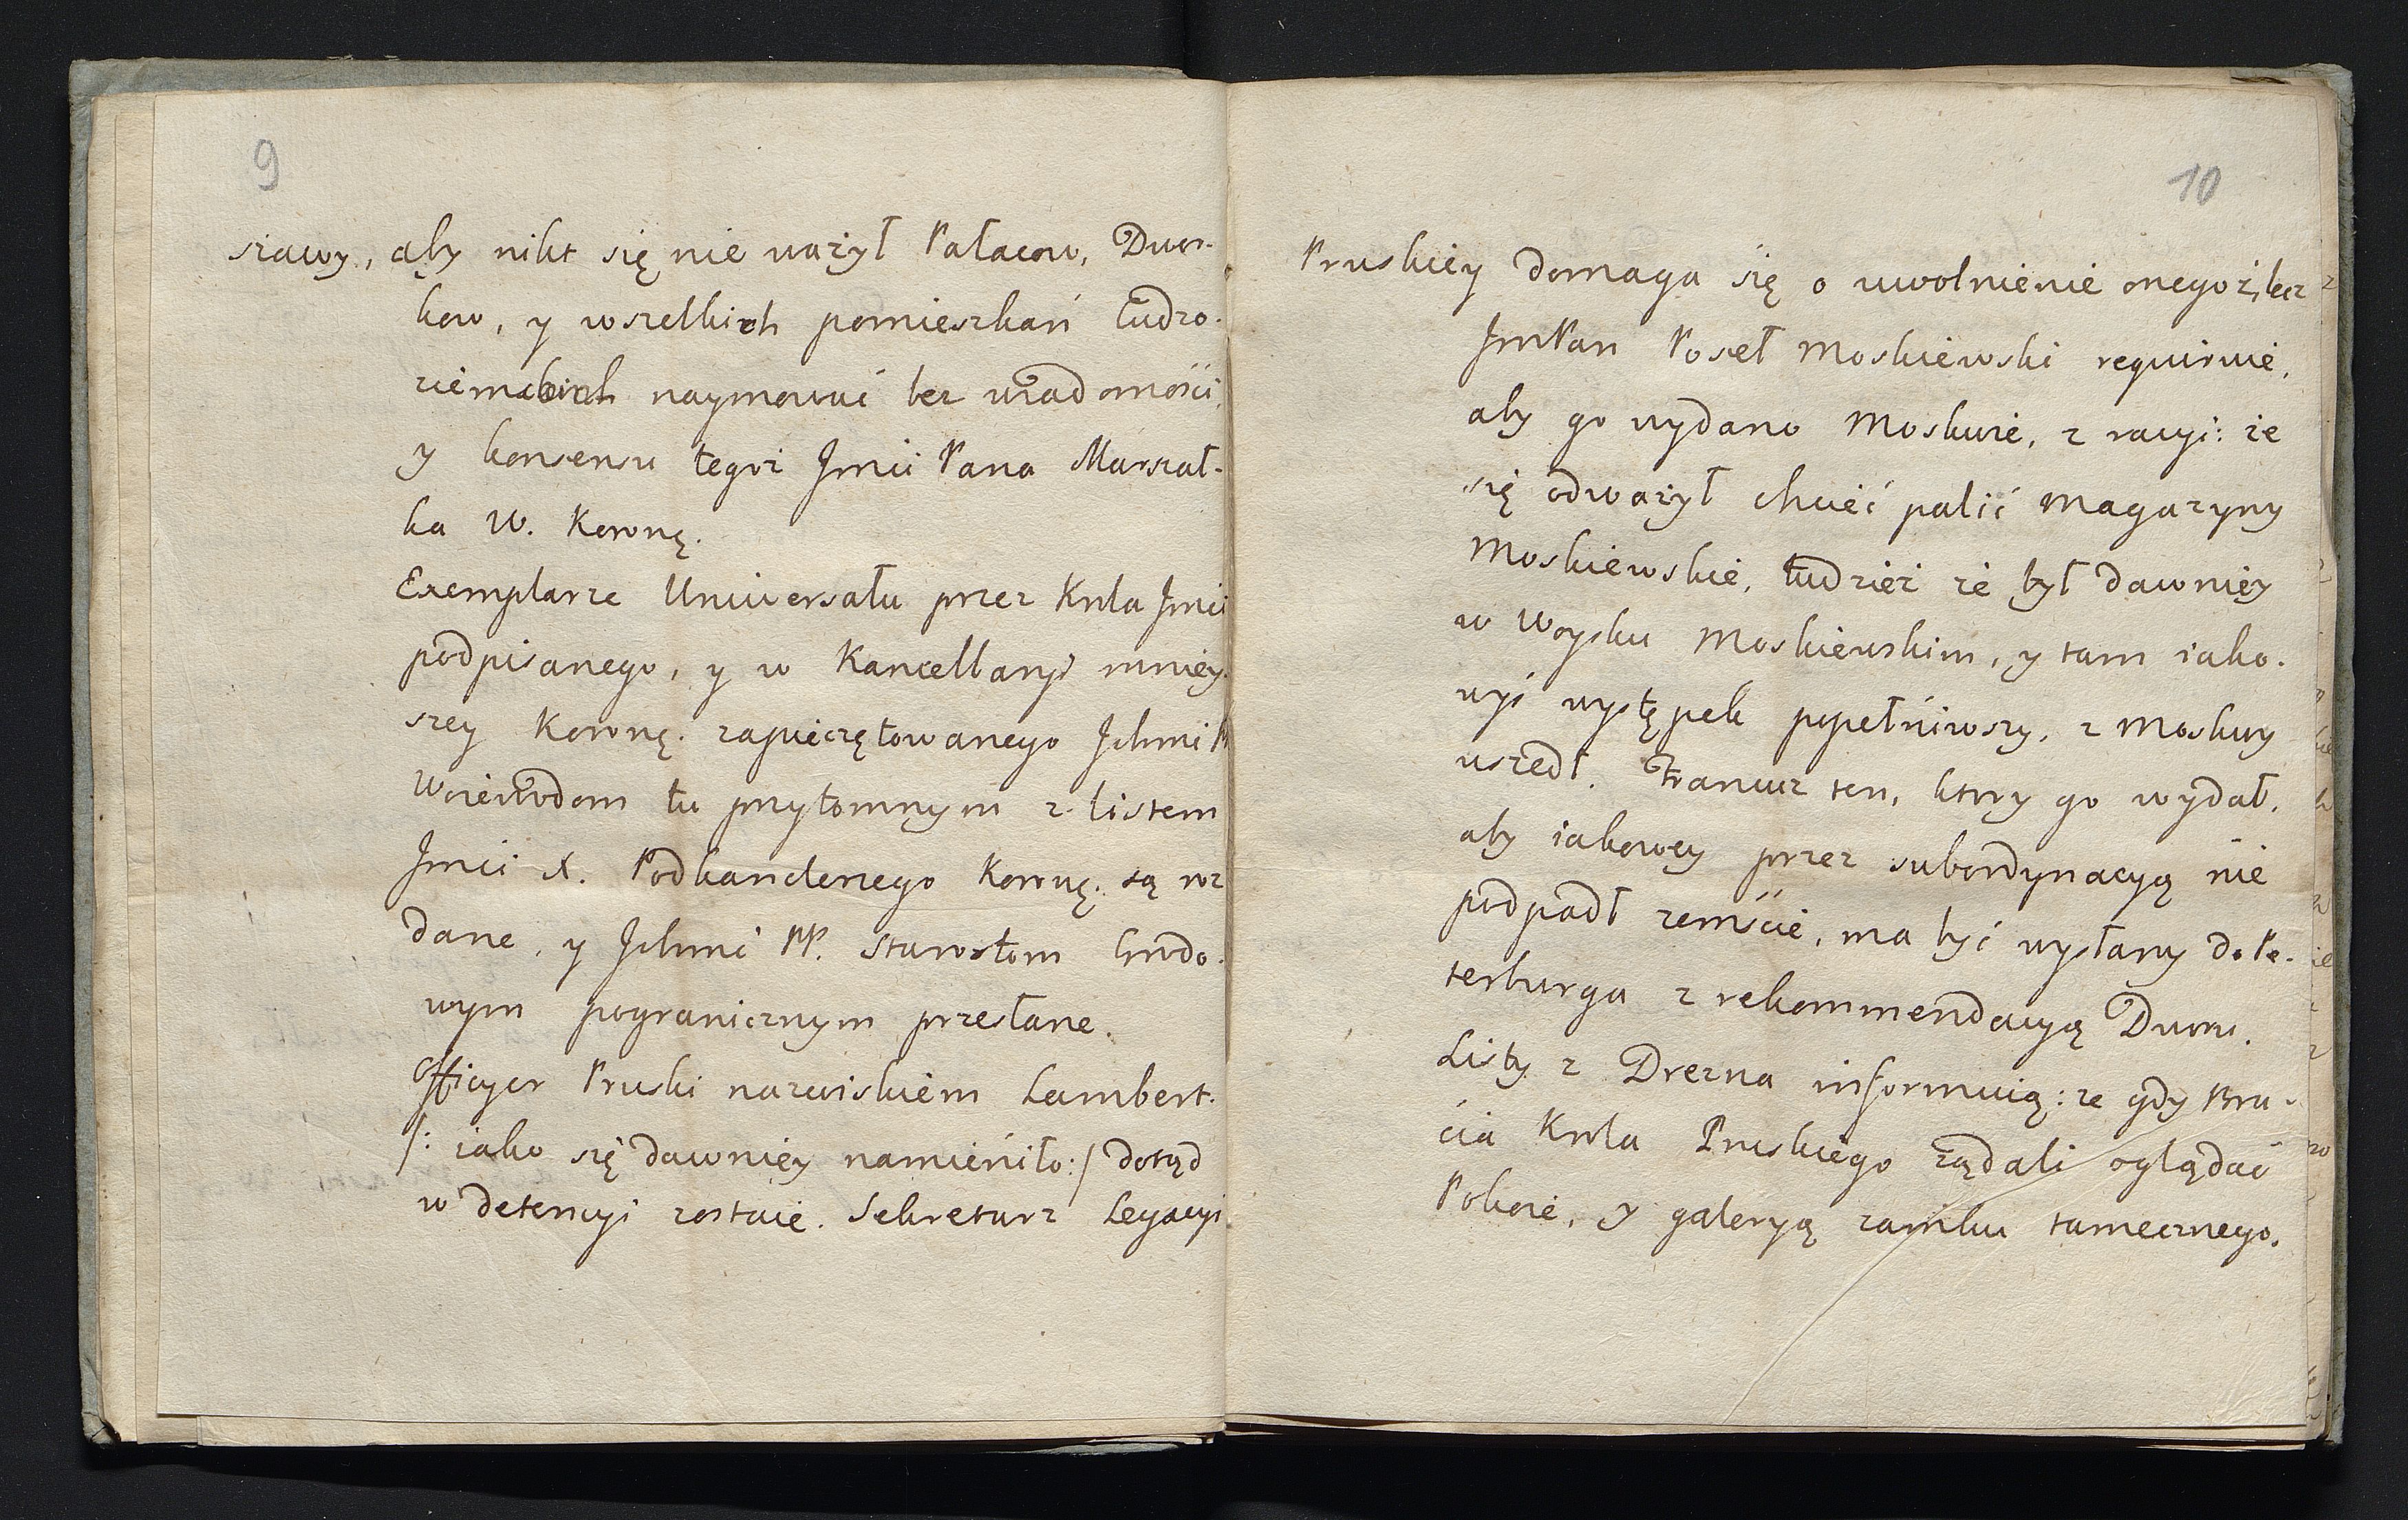 9
szawy, aby nikt się nie ważył Pałacow, Dwor-
kow, y wszelkich pomieszkań Cudzo-
ziemskich naymować bez wiadomości,
y konsensu tegoż Jmci Pana Marszał-
ka W. Koronę.
Exemplarze Uniwersału przez Krola Jmci
podpisanego, y w Kancellaryi mniey-
szey Koronę. zapieczętowanego Ichmć P
Woiewodom tu przytomnym z listem
Jmci X. Podkanclerzego Koronę. są roz
dane, y Ichmć PP. Starostom Grodo-
wym pogranicznym przesłane.
Officyer Pruski nazwiskiem Lambert.
/: iako się dawniey namieniło :/ dotąd
w detencyi zostaie. Sekretarz Legacyi
10
Pruskiey domaga się o uwolnienie onegoż, lecz
JmPan Poseł Moskiewski requiruie,
aby go wydano Moskwie, z racyi: że
się odważył chcieć palić Magazyny
Moskiewskie, tudzież że był dawniey
w Woysku Moskiewskim, y tam iako-
wyś występek popełniwszy, z Moskwy
uszedł. Francuz ten, ktory go wydał,
aby iakowey przez subordynacyą nie
podpadł zemście, ma być wysłany do Pe-
terburga z rekommendacyą Dworu.
Listy z Drezna informuią: że gdy Bra-
cia Krola Pruskiego żądali oglądać
Pokoie, y galeryą zamku tamecznego,